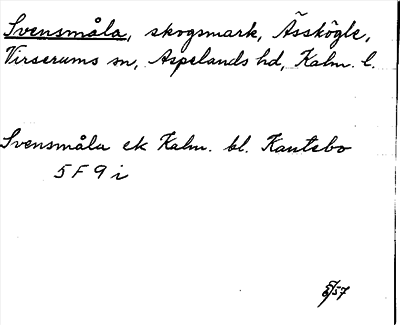 Svensmåla, skogsmark, Åsskögle,
Virserums sn, Aspelands hd, Kalm. l.
Svensmåla ek Kalm. bl. Kantebo
5 F 9 i